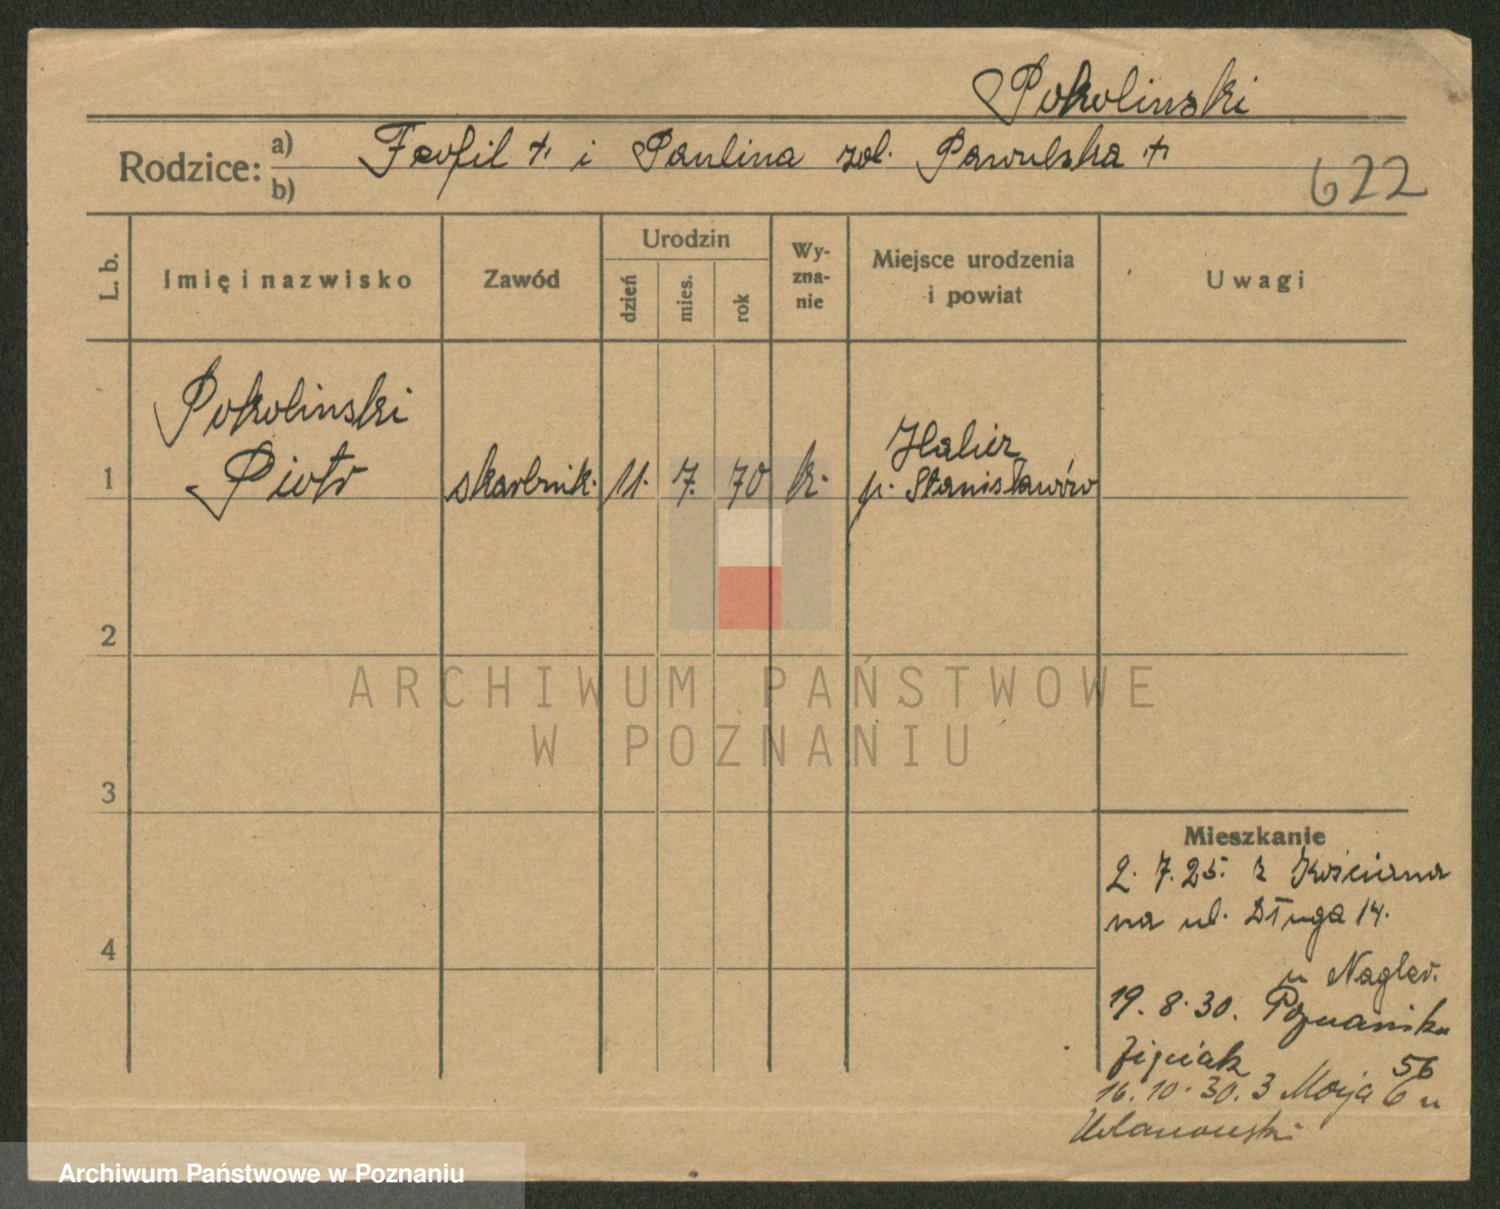 Pokolinski
Rodzice: a) Teofil †. i Paulina zd. Pawulska †
b)
622
L. b.
Imię i nazwisko
Zawód
Urodzin
dzień
mies.
rok
Wy-
zna-
nie
Miejsce urodzenia
i powiat
Uwagi
Pokolinski
1 Piotr skarbnik. 11. 7. 70 k. Halicz
p. Stanisławów
2
3
4
ARCHIWUM PAŃSTWOWE
W POZNANIU
Mieszkanie
2. 7. 25. z
na ul. Długa 14.
u Nagler.
19. 8. 30. 56
16. 10. 30. 3 Maja 6 u
Ulanowski
Archiwum Państwowe w Poznaniu